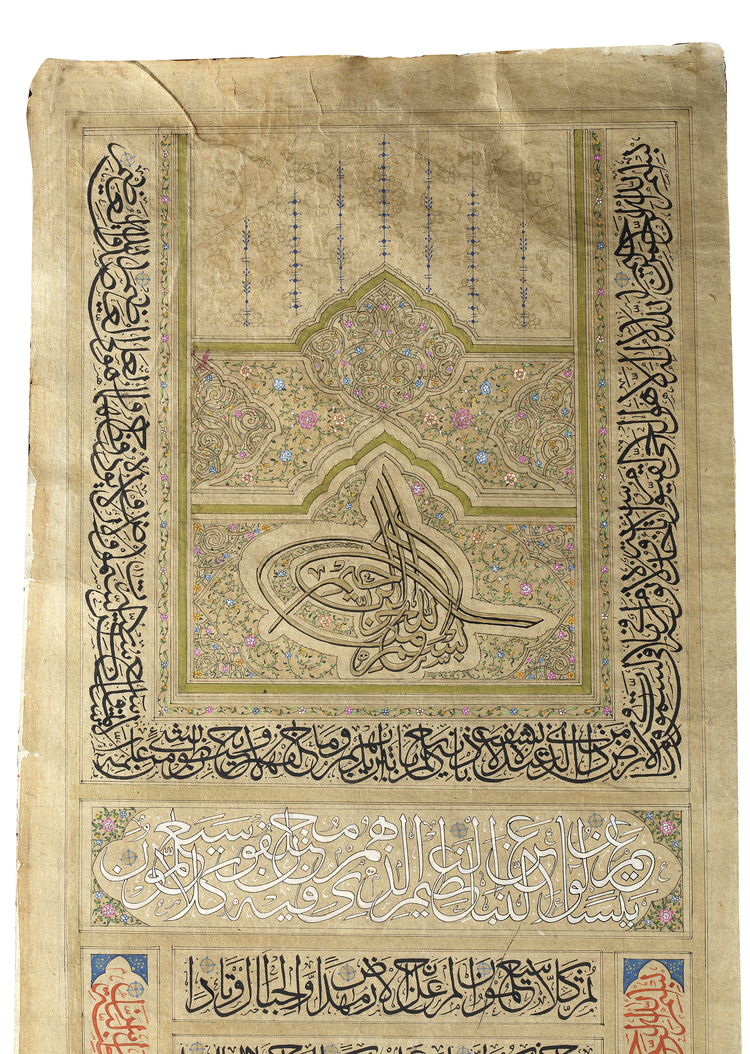 بسم الله الرحمن الرحيم الله لا اله الا هو الحي القيوم لا تأخذه سنة ولا نوم له ما في السموات و
ما في الارض من ذا الذي يشفع عنده الا باذنه يعلم ما بين ايديهم وما خلفهم ولا يحيطون بشيء من علمه
الا بما شاء وسع كرسيه السموات والارض ولا يؤده حفظهما وهو العلي العظيم
بسم الله الرحمن الرحيم
عم يتساءلون عن النبإ العظيم الذي هم فيه مختلفون كلا سيعلمون
ثم كلا سيعلمون الم نجعل الارض مهادا والجبال اوتادا
بسم الله